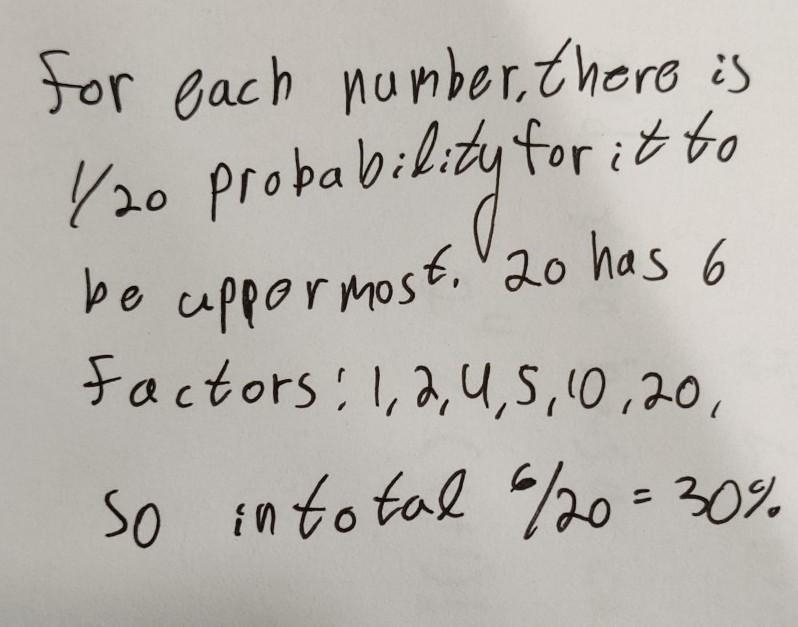 for each number, there is
1/20 probability for it to
be uppermost. 20 has 6
factors: 1, 2, 4, 5, 10, 20,
so in total 6/20 = 30%